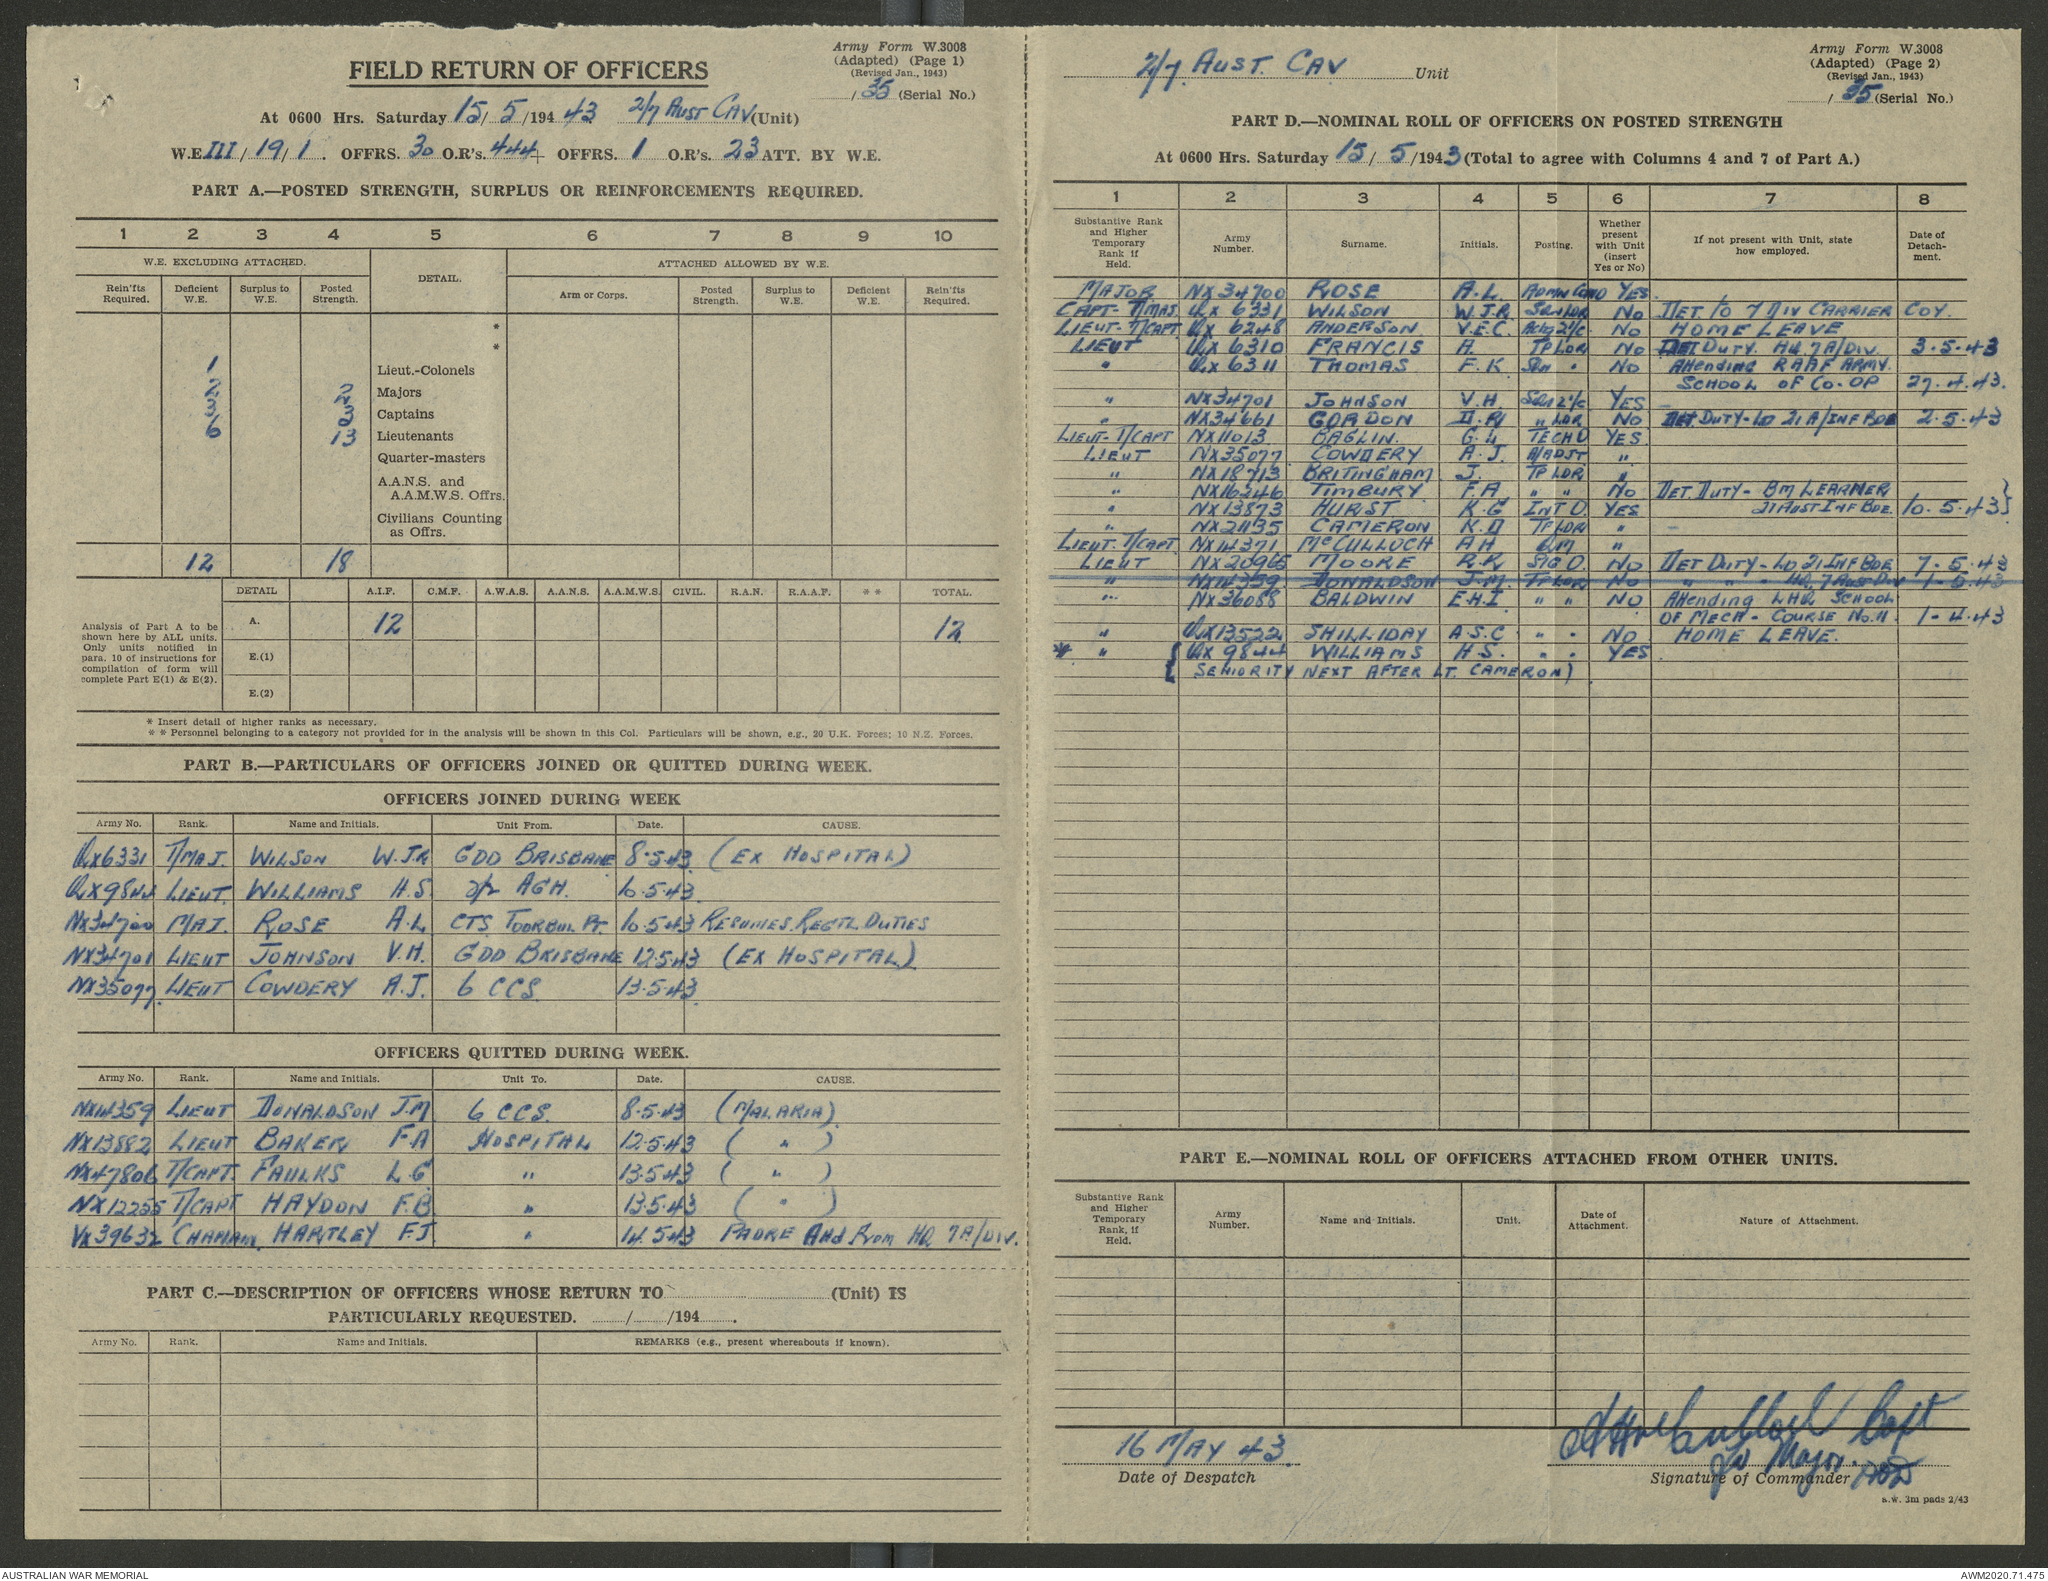 Army Form W.3008
(Adapted) (Page 1)
(Revised Jan., 1943)
/ 35 (Serial No.)
FIELD RETURN OF OFFICERS
At 0600 Hrs. Saturday 15/ 5 /194 43 2/7 AUST CAV (Unit)
W.E. III / 19 / 1 . OFFRS. 30 O.R's. 444 OFFRS. 1 O.R's. 23 ATT. BY W.E.
PART A.—POSTED STRENGTH, SURPLUS OR REINFORCEMENTS REQUIRED.
1 2 3 4 5 6 7 8 9 10
W.E. EXCLUDING ATTACHED. DETAIL. ATTACHED ALLOWED BY W.E.
Rein'fts Required. Deficient W.E. Surplus to W.E. Posted Strength. Arm or Corps. Posted Strength. Surplus to W.E. Deficient W.E. Rein'fts Required.
*
*
1 Lieut.-Colonels
2 2 Majors
3 3 Captains
6 13 Lieutenants
Quarter-masters
A.A.N.S. and
A.A.M.W.S. Offrs.
Civilians Counting
as Offrs.
12 18
DETAIL A.I.F. C.M.F. A.W.A.S. A.A.N.S. A.A.M.W.S. CIVIL. R.A.N. R.A.A.F. * * TOTAL.
Analysis of Part A to be
shown here by ALL units.
Only units notified in
para. 10 of instructions for
compilation of form will
complete Part E(1) & E(2).
A. 12 12
E.(1)
E.(2)
* Insert detail of higher ranks as necessary.
* * Personnel belonging to a category not provided for in the analysis will be shown in this Col. Particulars will be shown, e.g., 20 U.K. Forces; 10 N.Z. Forces.
PART B.—PARTICULARS OF OFFICERS JOINED OR QUITTED DURING WEEK.
OFFICERS JOINED DURING WEEK
Army No. Rank. Name and Initials. Unit From. Date. CAUSE.
QX6331 T/MAJ. WILSON W.J.R. GDD BRISBANE 8.5.43 (EX HOSPITAL)
QX9844 LIEUT. WILLIAMS H.S. 2/2 AGH. 10.5.43
NX34700 MAJ. ROSE A.L. CTS. TOORBUL PT. 10.5.43 RESUMES REGTL DUTIES
NX34701 LIEUT JOHNSON V.H. GDD BRISBANE 12.5.43 (EX HOSPITAL)
NX35077 LIEUT COWDERY A.J. 6 CCS. 13.5.43
OFFICERS QUITTED DURING WEEK.
Army No. Rank. Name and Initials. Unit To. Date. CAUSE.
NX14359 LIEUT DONALDSON J.M. 6 CCS. 8.5.43 (MALARIA)
NX13882 LIEUT BAKER F.A HOSPITAL 12.5.43 ( " )
NX47806 T/CAPT. FAULKS L.G. " 13.5.43 ( " )
NX12255 T/CAPT HAYDON F.B " 13.5.43 ( " )
VX39632 CHAPLAIN. HARTLEY F.J " 14.5.43 PADRE Attd From HQ 7A/DIV.
PART C.—DESCRIPTION OF OFFICERS WHOSE RETURN TO (Unit) IS
PARTICULARLY REQUESTED. / /194 .
Army No. Rank. Name and Initials. REMARKS (e.g., present whereabouts if known).
2/7. AUST. CAV Unit
Army Form W.3008
(Adapted) (Page 2)
(Revised Jan., 1943)
/ 35 (Serial No.)
PART D.—NOMINAL ROLL OF OFFICERS ON POSTED STRENGTH
At 0600 Hrs. Saturday 15/ 5 /1943 (Total to agree with Columns 4 and 7 of Part A.)
1 2 3 4 5 6 7 8
Substantive Rank and Higher Temporary Rank if Held. Army Number. Surname. Initials. Posting. Whether present with Unit (insert Yes or No) If not present with Unit, state how employed. Date of Detach-ment.
MAJOR NX34700 ROSE A.L. ADMN COMD YES
CAPT- T/MAJ. QX 6331 WILSON W.J.R. SQN LDR NO DET. TO 7 DIV CARRIER COY.
LIEUT- T/CAPT. QX 6248 ANDERSON V.E.C. Actg 2i/c NO HOME LEAVE
LIEUT QX 6310 FRANCIS A. TP LDR NO DET. DUTY. HQ. 7 A/DIV. 3.5.43
" QX 6311 THOMAS F.K. SQN " NO Attending RAAF ARMY
SCHOOL OF CO-OP 27.4.43.
" NX34701 JOHNSON V.H. SQN 2i/c YES
" NX34661 GORDON D.R. " LDR NO DET. DUTY-LO 21 A/INF BDE 2.5.43
LIEUT- T/CAPT NX11013 BAGLIN. G.L TECH O YES
LIEUT NX35077 COWDERY A.J. A/ADJT "
" NX18713 BRITINGHAM J. TP LDR "
" NX16246 TIMBURY F.A " " NO DET. DUTY- BM LEARNER
" NX13873 HURST K.G INT O. YES 21 AUST INF BDE. 10.5.43}
" NX21135 CAMERON K.D TP LDR " –
LIEUT. T/CAPT NX14371 McCULLOCH A H QM "
LIEUT NX20965 MOORE R.R SIG O. NO DET DUTY- LO 21 INF BDE 7.5.43
" NX14359 DONALDSON J.M. TP LDR NO " " " HQ. 7 AUST DIV 1.5.43
" NX36088 BALDWIN E.H.I " " NO Attending LHQ SCHOOL
OF MECH - COURSE NO. 11. 1.4.43
" QX13522 SHILLIDAY A.S.C " " NO HOME LEAVE.
* " { QX 9844 WILLIAMS H.S. " " YES
SENIORITY NEXT AFTER LT. CAMERON)
PART E.—NOMINAL ROLL OF OFFICERS ATTACHED FROM OTHER UNITS.
Substantive Rank and Higher Temporary Rank, if Held. Army Number. Name and Initials. Unit. Date of Attachment. Nature of Attachment.
16 MAY 43.
Date of Despatch
AHMcCulloch Capt
for Major.
Signature of Commander
s.w. 3m pads 2/43
AUSTRALIAN WAR MEMORIAL
AWM2020.71.475